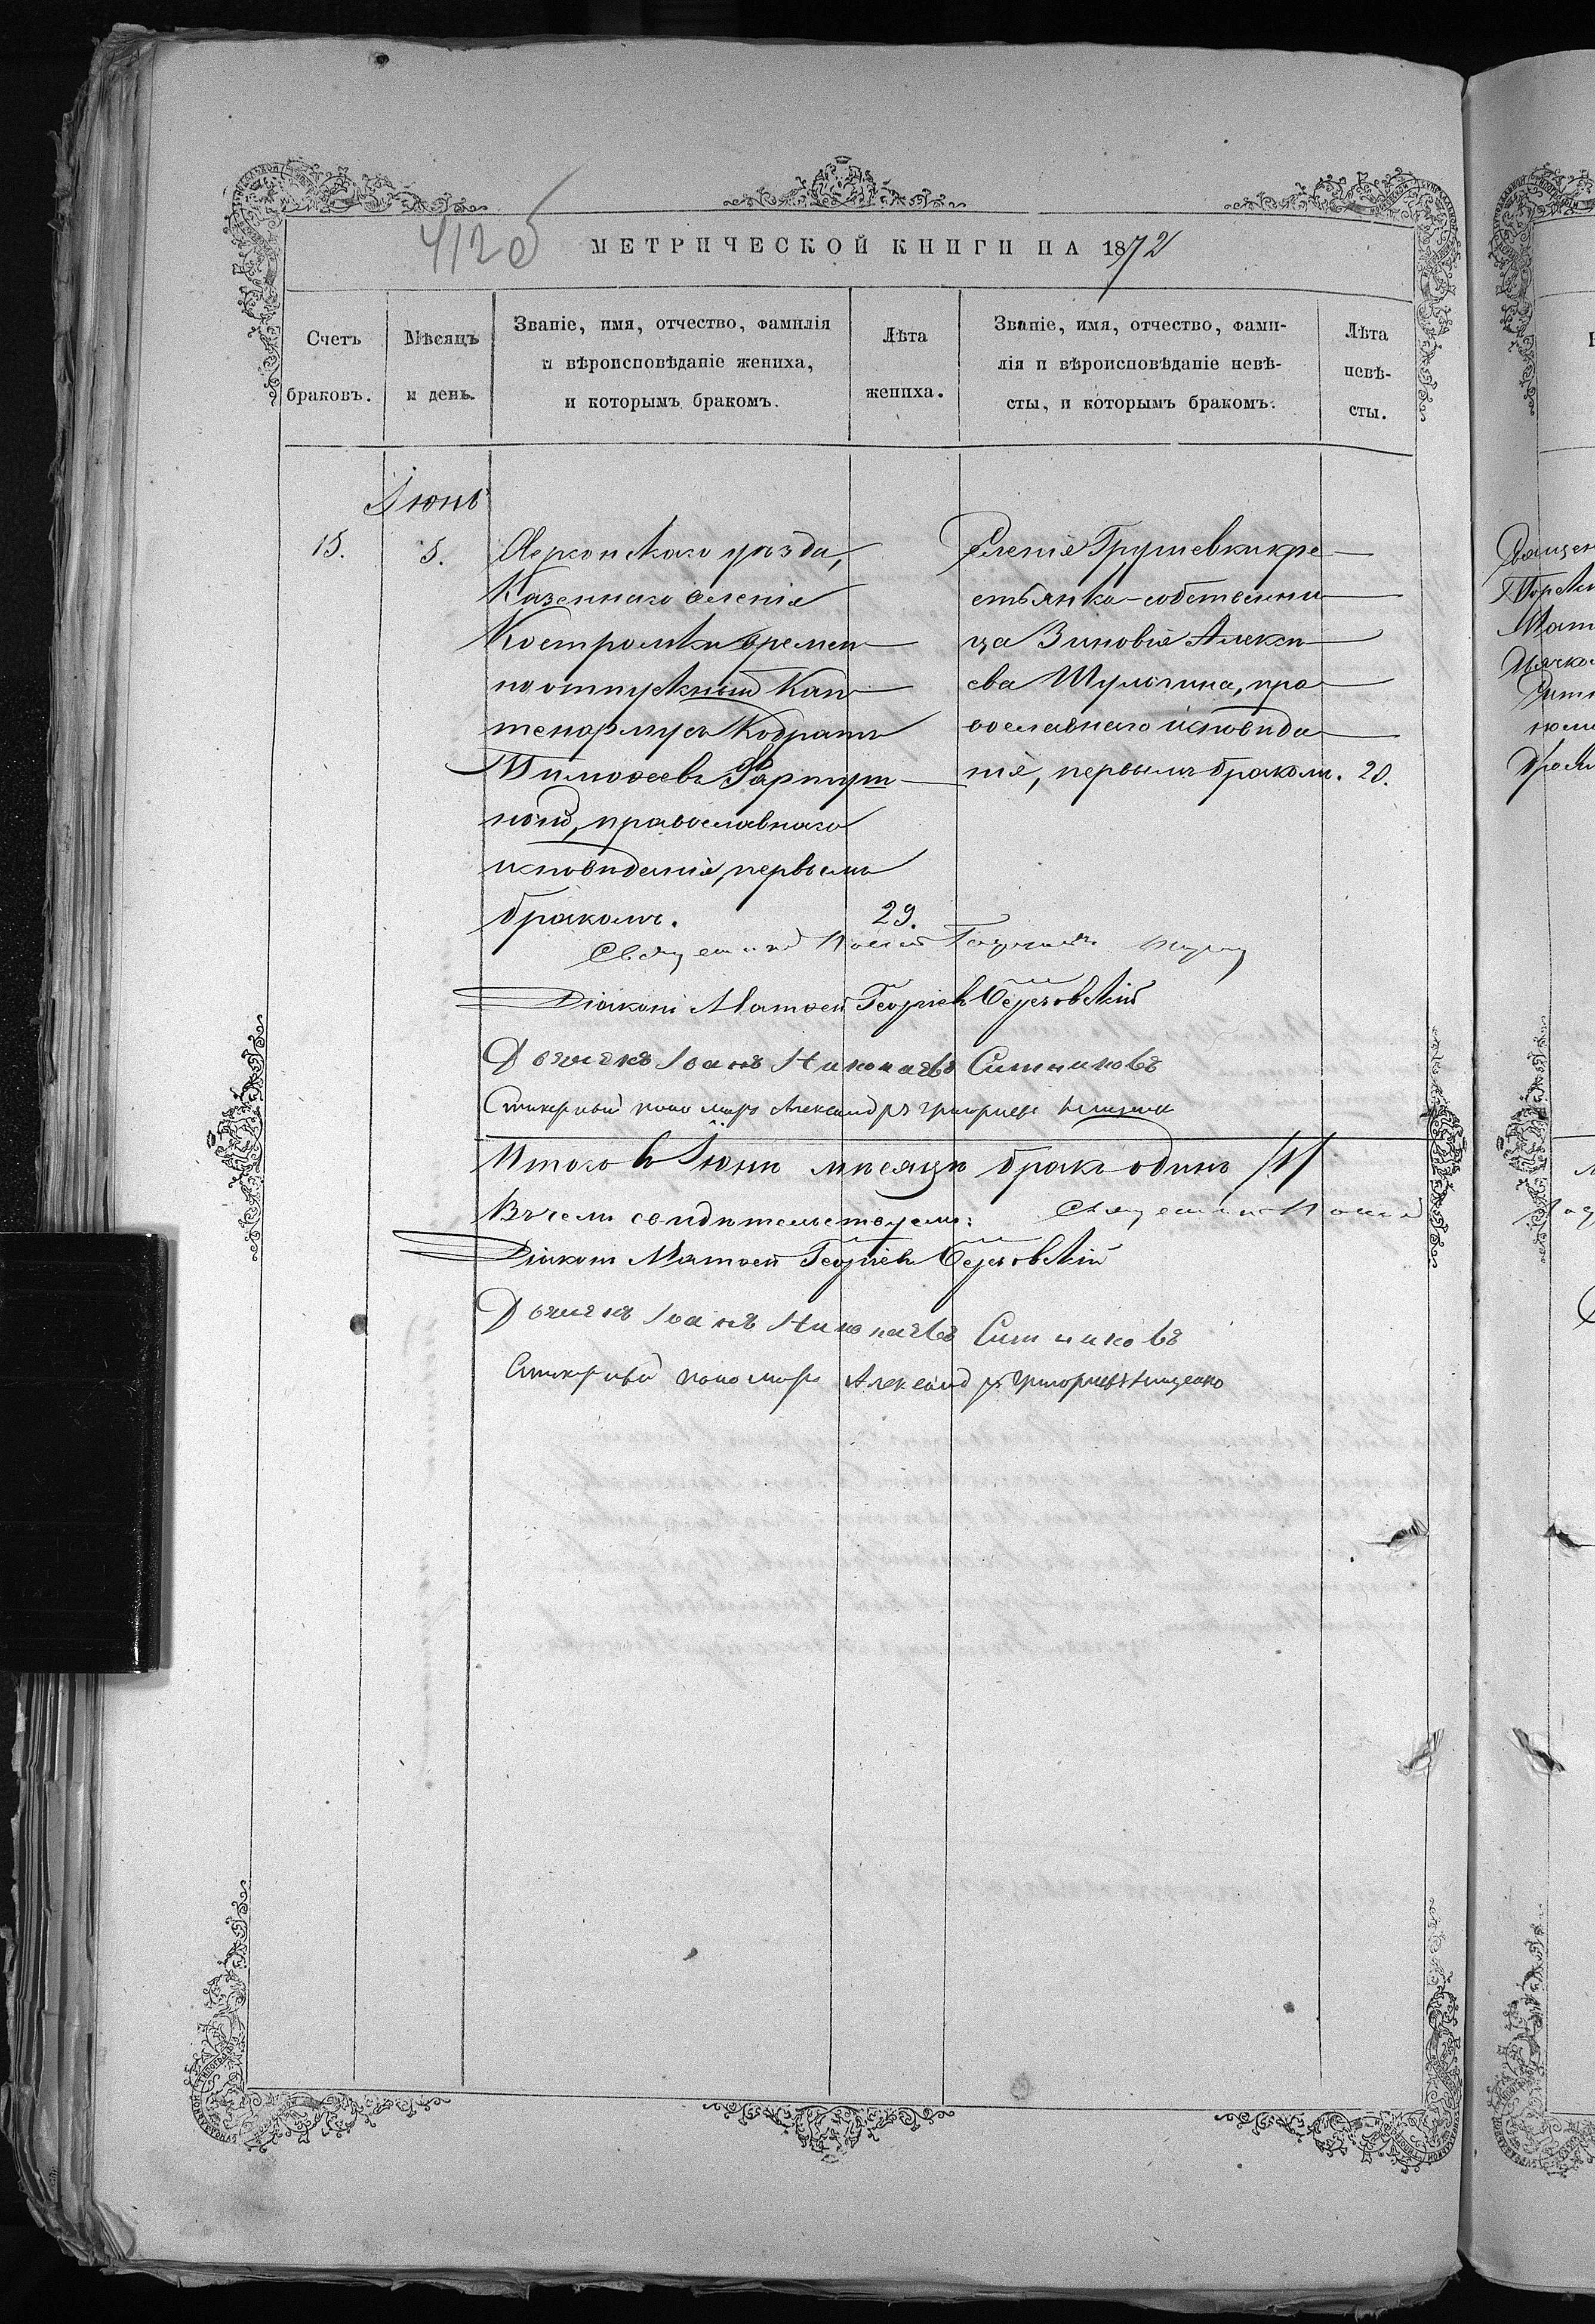 412 об
МЕТРИЧЕСКОЙ КНИГИ НА 1872
Счетъ браковъ.
Мѣсяцъ и день.
Званіе, имя, отчество, фамилія
и вѣроисповѣданіе жениха,
и которымъ бракомъ.
Лѣта жениха.
Званіе, имя, отчество, фами-
лія и вѣроисповѣданіе невѣ-
сты, и которымъ бракомъ.
Лѣта невѣ-
сты.
Іюнь
15.
5.
Херсонскаго уѣзда,
Казеннаго селенія
Костромки времен
но отпускный Кап
тенармусъ Кодратъ
Тимофеевъ Фартуш
ный, православнаго
исповѣданія, первымъ
бракомъ.
29.
Селенія Грушевки кре
стьянка-собственни
ца Зиновія Алексѣ
ева Шульгина, пра
вославнаго исповѣда
нія, первымъ бракомъ. 20.
Священникъ
Діаконъ Матѳей Георгіевъ
Дьячекъ Іоанъ Николаевъ Ситниковъ
Стихарный пономарь Александръ Григорьевъ
Итого въ Іюнѣ мѣсяцѣ бракъ одинъ /1/
Въ чемъ свидѣтельствуемъ:
Священникъ
Діаконъ Матѳей Георгіевъ
Дьячекъ Іоанъ Николаевъ Ситниковъ
Стихарный пономарь Александръ Григорьевъ